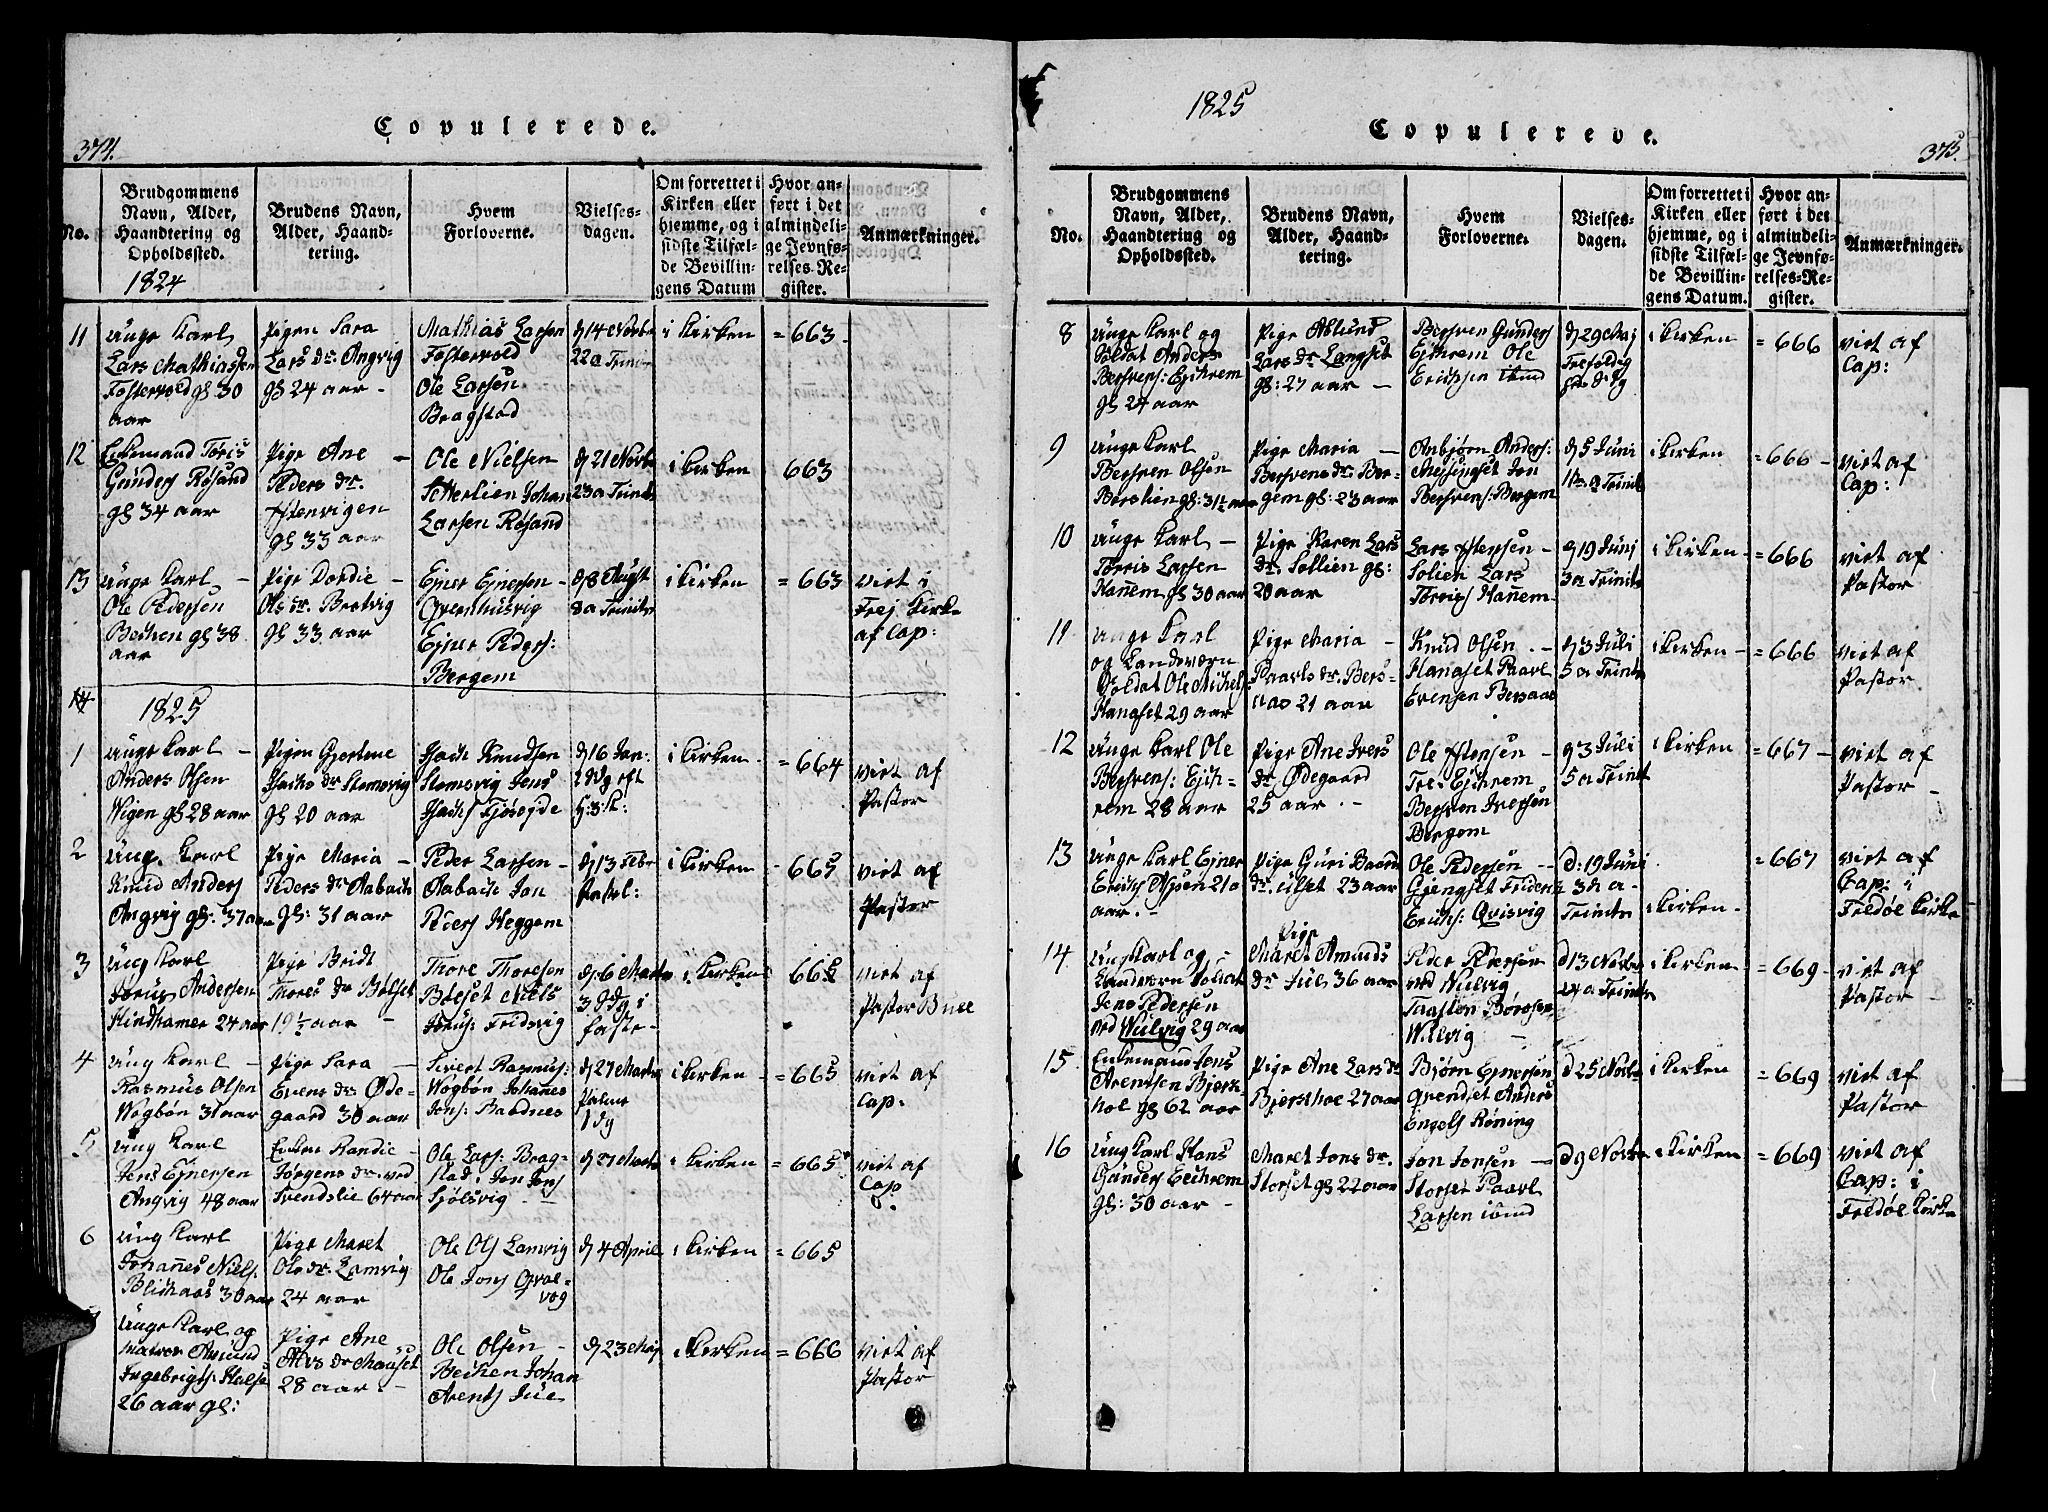 374.
Copulerede.
No.
Brudgommens
Navn, Alder,
Haandtering og
Opholdssted.
1824
Brudens Navn,
Alder, Haand-
tering.
Hvem
Forloverne.
Vielses-
dagen.
Om forrettet i
Kirken eller
hjemme, og i
sidste Tilfæl-
de Bevillin-
gens Datum
Hvor an-
ført i det
almindeli-
ge Jevnfø-
relses-Re-
gister.
Anmærkninger.
11
Unge Karl
Lars Mathiassen
Fostervold gl 30
aar
Pigen Sara
Lars dr. Angvig
gl 24 aar -
Mathias Larsen
Fostervold
Ole Larsen
Bragstad
14 Novbr
22 a Trinit
i Kirken
= 663 -
12
Enkemand Tøris
Gunders Røsand
gl 34 aar
Pige Ane -
Peders dr.
Estenvigen
gl 33 aar
Ole Nielsen
Setterlien Johan
Larsen Røsand
21 Novbr
23 a Trinit
i Kirken
663
13
Unge Karl -
Ole Pedersen
Bechen gl 38
aar
Pige Dordie -
Ols dr. Bretvig
gl 33 aar
Ejner Ejnersen -
Qvenhusvig
Ejner Peders:
Bergem
8 Augst
8 a Trinit
i Kirken
= 663
viet i
Frej Kirke
af Cap:
14
1825
1
Unge Karl -
Anders Olsen
Wigen gl 28 aar
Pigen Gjertine
Isachs dr Stomsvig
gl 20 aar
Isach Knudsen
Stomsvig Jens
Isachs Fjøseide
16 Jan:
2 dg eft
H: 3 K:
i Kirken -
= 664
viet af
Pastor
2
Ung Karl
Knud Anders
Angvig gl: 37 aar
Pige Maria -
Peders dr Aabach
gl: 31 aar
Peder Larsen -
Aabach Jon
Peders Heggem
13 Febr
Fastel:
i Kirken
= 665
viet af
Pastor
3
Ung Karl
Andersen
Hindhamer 24 aar
Pige Bridt
Thores dr Bolset
19½ aar -
Thore Thoresen
Bolset Niels
Fredsvig
6 Marts
3 Sdg i
faste -
i Kirken
665
viet af
Pastor Buee
4
Ung Karl -
Rasmus Olsen
Wogbøn 31 aar
Pige Sara -
Evens dr Øde-
gaard 30 aar
Sivert Rasmus:
Wogbøn Johanes
Jons: Baadnes
27 Marts
Palme
Sdg
i Kirken -
= 665
viet af
Cap:
5
Ung Karl
Jens Ejnersen
Angvig 48 aar
Enken Randie -
Jørgens dr. ved
Trendslie 64 aar
Ole Lars: Brag-
stad, Jon Jons
Sjølsvig -
27 Marts
i Kirken
= 665
viet af
Cap
6
Ung Karl
Johannes Niels:
Blichaas 30 aar
Pige Maret
Ole dr. Lamvig
24 aar
Ole Ols Lamvig
Ole Jons Qval-
vog
4 April
i Kirken
= 665
Unge Karl og
Matros Amund
Ingebrigts: Halse
26 aar gl:
Pige Ane
Alvs dr Mauset
28 aar -
Ole Olsen -
Bechen Johan
Arents Jue
23 Maj
i Kirken
= 666
viet af
Pastor
1825
Copulerede.
375.
No.
Brudgommens
Navn, Alder,
Haandtering og
Opholdssted.
Brudens Navn,
Alder, Haand-
tering.
Hvem
Forloverne.
Vielses-
dagen.
Om forrettet i
Kirken eller
hjemme, og i
sidste Tilfæl-
de Bevillin-
gens Datum.
Hvor an-
ført i det
almindeli-
ge Jevnfø-
relses-Re-
gister.
Anmærkninger.
8
Unge Karl og
Soldat Anders
Bersvens: Ejchrem
gl 24 aar
Pige Ablund
Lars dr Langset
gl: 27 aar -
Bersven Gunders
Ejchrem Ole
Erichsen ibid
29 Maj
Trefoldig
hedsdg
i Kirken
= 666
viet af
Cap:
9
Unge Karl
Bersven Olsen
Berslien gl: 31½ aar
Pige Maria -
Bersvens dr. Ber-
gem gl: 23 aar
Anbjørn Anders:
Messingset Jon
Bersvens: Bergem
5 Juni
1te a Trinit
i Kirken
= 666 -
viet af
Cap:
10
Unge Karl -
Tørris Larsen
Hanem gl 30 aar
Pige Karen Lars
dr. Sollien gl:
20 aar
Lars Estensen -
Solien Lars
Tørris Hanem
19 Junj
3 a Trinit
i Kirken -
= 666
viet af
Pastor
11
Unge Karl
og Landeværn
Soldat Ole Michels:
Hangset 29 aar
Pige Maria -
Paarls dr. Bers-
aas 21 aar
Knud Olsen . -
Hangset Paarl
Evensen Bersaas
3 Juli
5 a Trinit
i Kirken -
= 666
viet af
Pastor.
12
Unge Karl Ole
Bersvens: Ejch-
rem 28 aar
Pige Ane Ivers
dr. Ødegaard
25 aar . -
Ole Estensen -
Tre- Ejchrem
Bersven Iversen
Bergem
3 Juli
5 a Trinit
i Kirken -
= 667 -
viet af
Pastor -
13
Unge Karl Ejner
Erichs Aspen 21
aar . -
Pige Guri Baards
dr. Ulset 23 aar
Ole Pedersen -
Gjengset Frider
Erichs: Qvisvig
d: 19 Juni
3de a-
Trinit
i Kirken -
= 667
viet af
Cap: i
Fredøe Kirke
14
Ung Karl og -
Landværn Soldat
Jens Pedersen
ved Wulvig 29 aar
Pige
Maret Amunds
dr Jul: 36 aar
Peder Pedersen
ved Wulvig
Torsten Børgesen
Wulvig -
d 13 Novbr
24 a Trinit
i Kirken -
= 669 -
viet af
Pastor -
15
Enkemand Jens
Arentsen Bjerk-
hol gl 62 aar
Pige Ane Lars dr
Bjerkhoe 27 aar
Bjørn Ejnersen
Qvendset Anders
Engels Røning
d 25 Novbr
i Kirken
= 669
viet af
Pastor
16
Ung Karl Hans
Gunders Eichrem
gl: 30 aar -
Maret Jons dr.
Storset gl 22 aar
Jon Jonsen -
Storset Paarl
Larsen ibid
d 9 Novbr
i Kirken
= 669
viet af
Cap: i
Fredøe Kirke